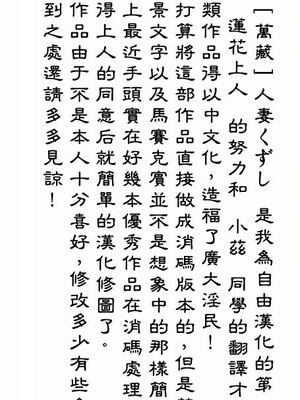 [萬藏]人妻くずし 是我為自由漢化的第
蓮花上人 的努力和 小茲 同學的翻譯才
類作品得以中文化,造福了廣大淫民!
打算將這部作品直接做成消碼版本的,但是
景文字以及馬賽克賓並不是想象中的那樣簡
上最近手頭實在好幾本優秀作品在消碼處理
得上人的同意后就簡單的漢化修圖了。
作品由于不是本人十分喜好,修改多少有些
到之處還請多多見諒!